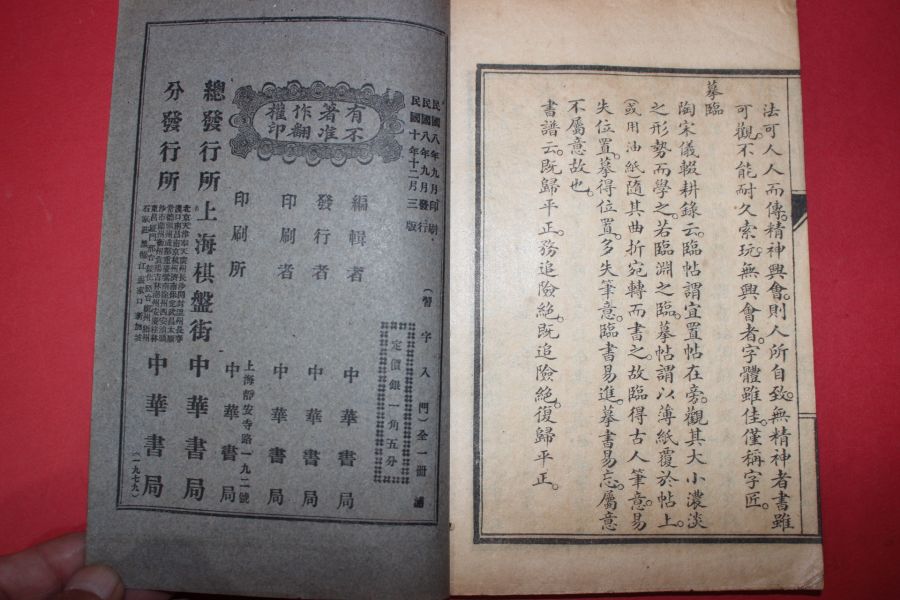 法可人人而傳。精神興會。則人所自致。無精神者書雖
可觀。不能耐久索玩。無興會者。字體雖佳。僅稱字匠。
摹臨
陶宋儀輟耕錄云。臨帖謂宜置帖在旁。觀其大小濃淡
之形勢而學之。若臨淵之臨。摹帖謂以薄紙覆於帖上。
(或用油紙)隨其曲折宛轉而書之。故臨得古人筆意。易
失位置。摹得位置。多失筆意。臨書易進。摹書易忘。屬意
不屬意故也。
書譜云。既歸平正。務追險絕。既追險絕。復歸平正。
(習字入門全一冊)
定價銀一角五分
民國八年九月印刷
民國八年九月發行
民國十年十二月三版
有著作權
不准翻印
編輯者 中華書局
發行者 中華書局
印刷者 中華書局
印刷所 上海靜安寺路一九二號 中華書局
總發行所 上海棋盤街 中華書局
分發行所
中華書局
(一九七九)